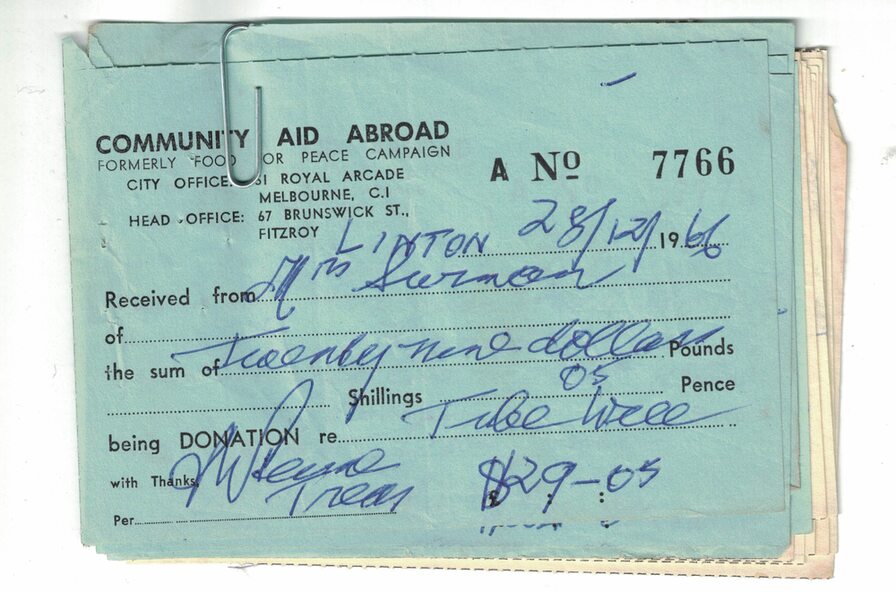 COMMUNITY AID ABROAD
FORMERLY FOOD FOR PEACE CAMPAIGN
CITY OFFICE: 61 ROYAL ARCADE
MELBOURNE, C.I
HEAD OFFICE: 67 BRUNSWICK ST.,
FITZROY
A No 7766
LINTON 28/12/1966
Received from Mrs Surman
of
the sum of Twenty nine dollars Pounds
Shillings 05 Pence
being DONATION re Tube Well
with Thanks,
Treas
$29-05
Per